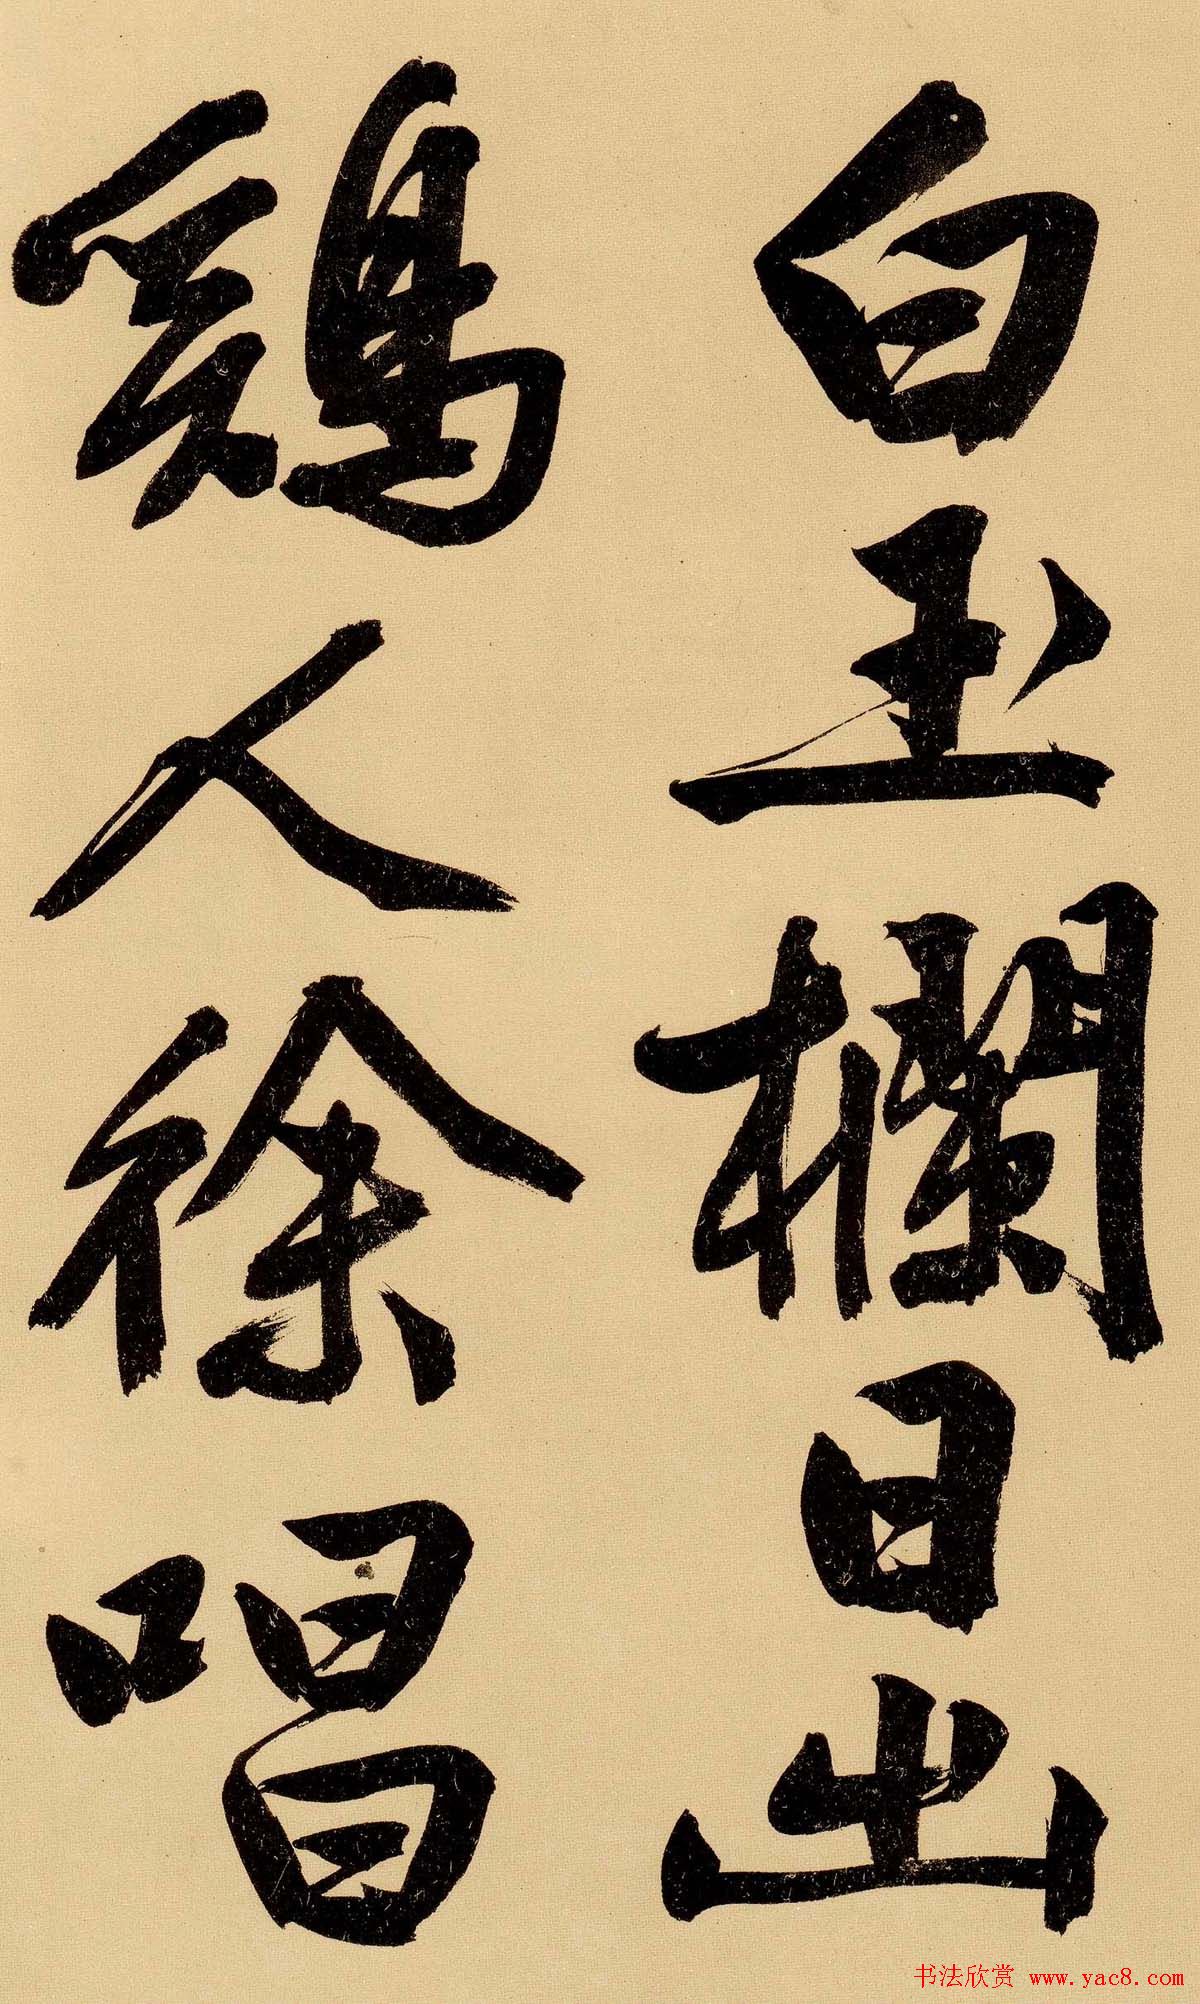 白玉欄日出
鷄人徐唱
书法欣赏 www.yac8.com